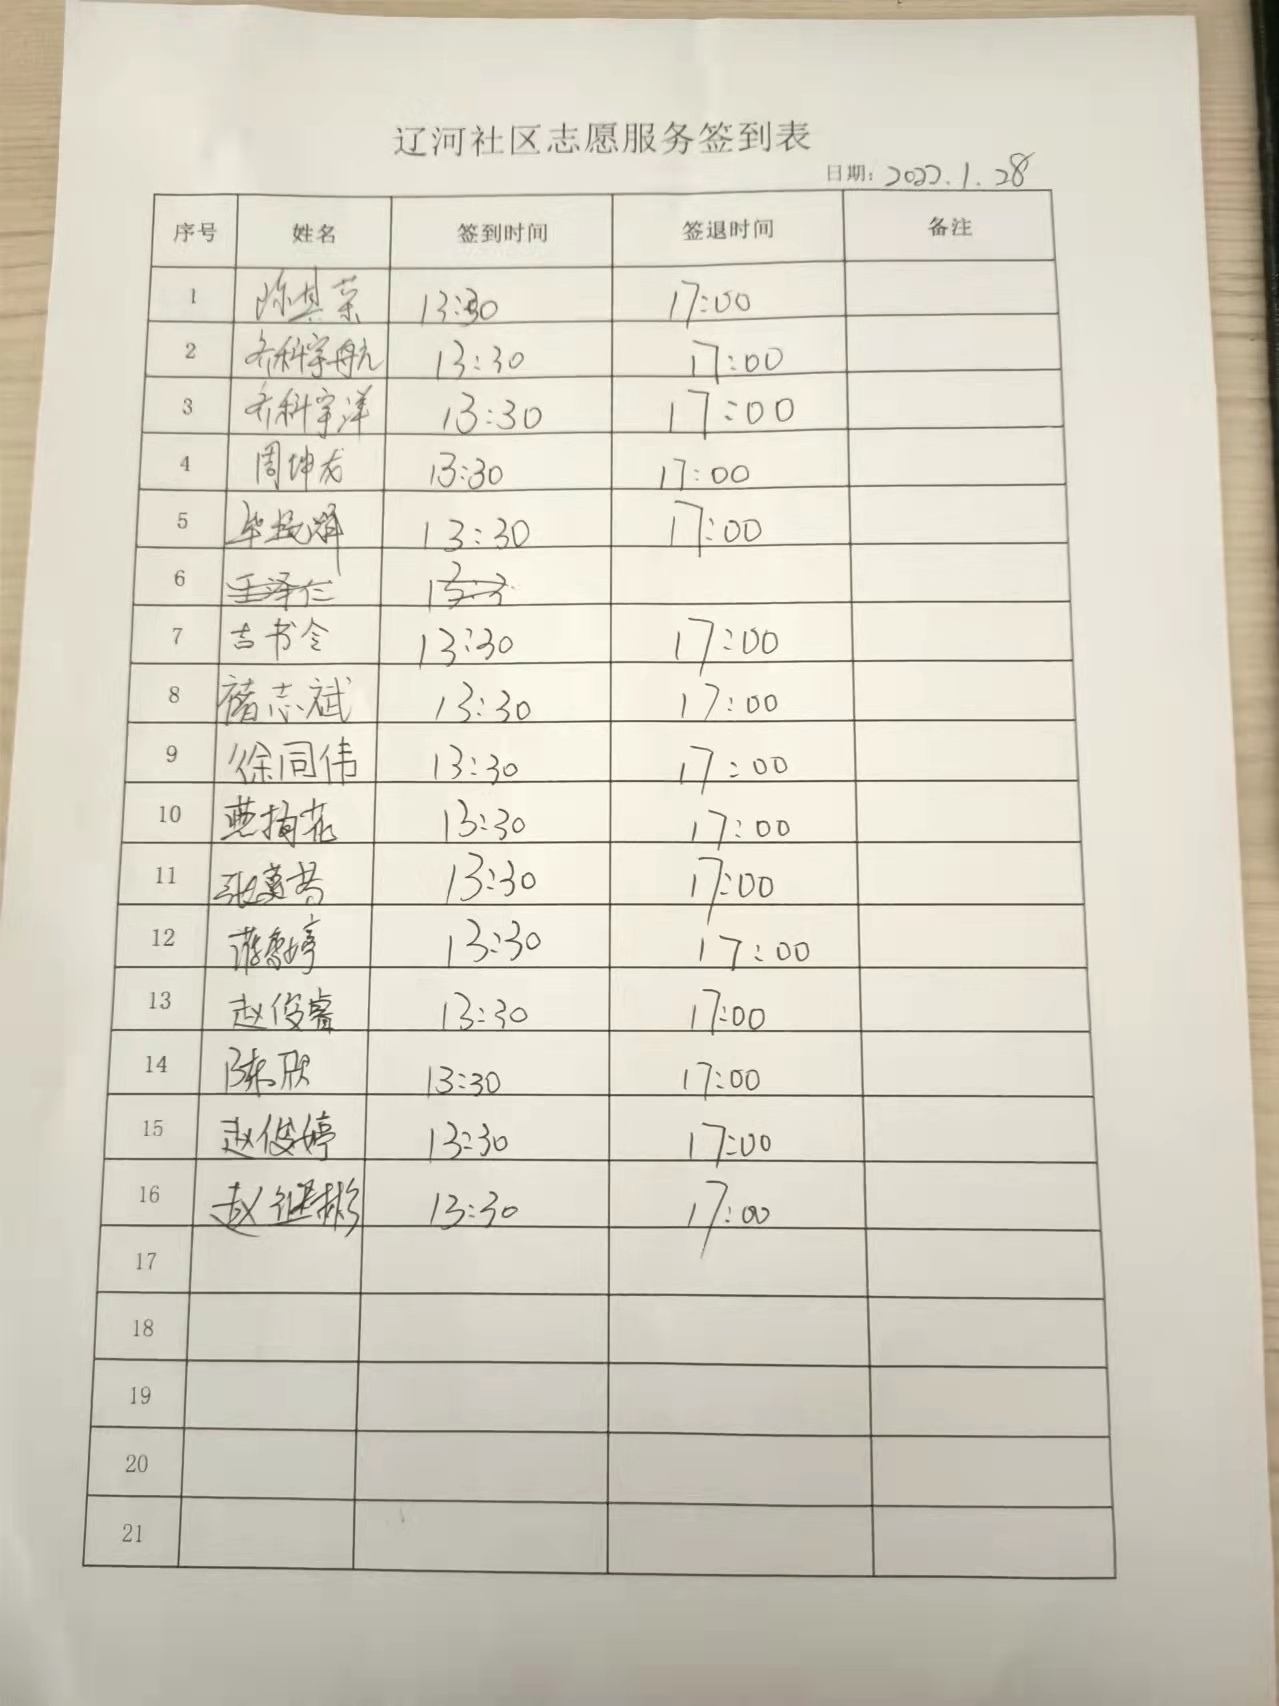 辽河社区志愿服务签到表
日期: 2022.1.28
序号 姓名 签到时间 签退时间 备注
1 陈其荣 13:30 17:00
2 乔科宇航 13:30 17:00
3 乔科宇洋 13:30 17:00
4 周坤龙 13:30 17:00
5 13:30 17:00
6 王泽仁
7 吉书令 13:30 17:00
8 褚志斌 13:30 17:00
9 徐同伟 13:30 17:00
10 13:30 17:00
11 13:30 17:00
12 13:30 17:00
13 赵俊睿 13:30 17:00
14 陈欣 13:30 17:00
15 赵俊婷 13:30 17:00
16 赵继彬 13:30 17:00
17
18
19
20
21